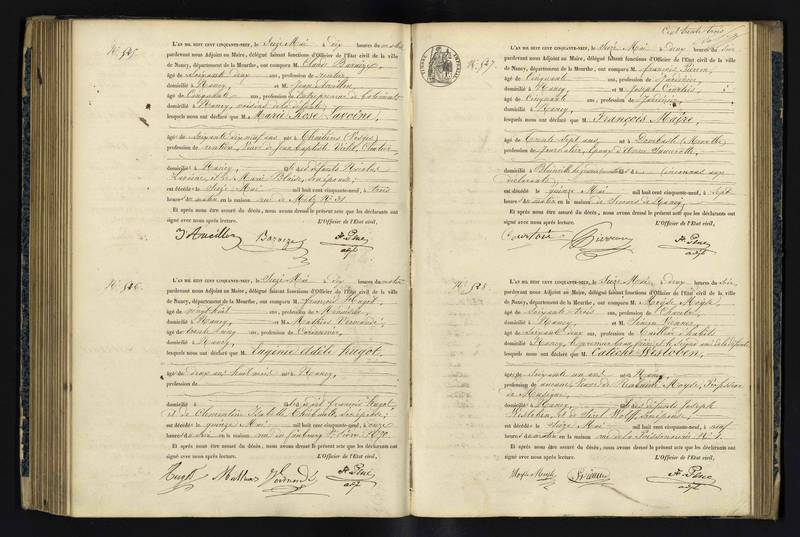 No. 525.
L'AN MIL HUIT CENT CINQUANTE-NEUF, le Seize Mai Dix heures du matin
pardevant nous Adjoint au Maire, délégué faisant fonctions d'Officier de l'Etat civil de la ville
de Nancy, département de la Meurthe, ont comparu M.
âgé de Soixante deux ans, profession de rentier,
domicilié à Nancy, et M. Jean
âgé de Cinquante ans, profession de Entrepreneur de bâtiments
domicilié à Nancy, voisins de la défunte,
lesquels nous ont déclaré que M. Marie Rose Lavoine,
âgé de Soixante dix neuf ans né à Chatillon (Vosges)
profession de rentière, Veuve de Jean Baptiste
domicilié à Nancy, fils des défunts Nicolas
Lavoine, et de Marie Blaise, son épouse,
est décédé le Seize Mai mil huit cent cinquante-neuf, à trois
heures du matin en la maison rue de Metz No. 31
Et après nous être assuré du décès, nous avons dressé le présent acte que les déclarants ont
signé avec nous après lecture. L'Officier de l'Etat civil,
adjt
No. 526.
L'AN MIL HUIT CENT CINQUANTE-NEUF, le Seize Mai Dix heures du matin
pardevant nous Adjoint au Maire, délégué faisant fonctions d'Officier de l'Etat civil de la ville
de Nancy, département de la Meurthe, ont comparu M. François Hugot
âgé de vingt huit ans, profession de Menuisier
domicilié à Nancy, et M. Mathias
âgé de trente cinq ans, profession de Cordonnier,
domicilié à Nancy,
lesquels nous ont déclaré que M. Eugénie Adèle Hugot,
âgé de deux ans huit mois né à Nancy,
profession de
domicilié à fils de François Hugot
et de Clémentine Isabelle Thiébault, son épouse;
est décédé le quinze Mai mil huit cent cinquante-neuf, à onze
heures du soir en la maison rue du faubourg St. Pierre
Et après nous être assuré du décès, nous avons dressé le présent acte que les déclarants ont
signé avec nous après lecture. L'Officier de l'Etat civil,
Hugot
adjt
Cent trente trois
No. 527.
L'AN MIL HUIT CENT CINQUANTE-NEUF, le Seize Mai Deux heures du soir
pardevant nous Adjoint au Maire, délégué faisant fonctions d'Officier de l'Etat civil de la ville
de Nancy, département de la Meurthe, ont comparu M. François
âgé de Cinquante ans, profession de
domicilié à Nancy et M. Joseph Courtois
âgé de Cinquante ans, profession de
domicilié à Nancy,
lesquels nous ont déclaré que M. François Maire,
âgé de Trente Sept ans né à Dombasle (Meurthe)
profession de journalier, époux d'Anne
domicilié à Blainville
est décédé le quinze Mai mil huit cent cinquante-neuf, à Sept
heures du matin en la maison de Secours de Nancy
Et après nous être assuré du décès, nous avons dressé le présent acte que les déclarants ont
signé avec nous après lecture. L'Officier de l'Etat civil,
Courtois
adjt
No. 528
L'AN MIL HUIT CENT CINQUANTE-NEUF, le Seize Mai, deux heures du soir,
pardevant nous Adjoint au Maire, délégué faisant fonctions d'Officier de l'Etat civil de la ville
de Nancy, département de la Meurthe, ont comparu M. Moyse Moyse,
âgé de Soixante trois ans, profession de Chantre,
domicilié à Nancy, et M.
âgé de Soixante deux ans, profession de Tailleur d'habits
domicilié à Nancy, le premier beau frère et le Second ami de la défunte
lesquels nous ont déclaré que M. Caliche Wisloben,
âgé de Soixante un ans né à Nancy
profession de aucune, Veuve de Moyse, Professeur
de Musique,
domicilié à Nancy, fils des défunts Joseph
Wisloben, et de Wolff, son épouse,
est décédé le Seize Mai mil huit cent cinquante-neuf, à neuf
heures du matin en la maison rue de la Poissonnerie
Et après nous être assuré du décès, nous avons dressé le présent acte que les déclarants ont
signé avec nous après lecture. L'Officier de l'Etat civil,
Moyse Moyse
adjt